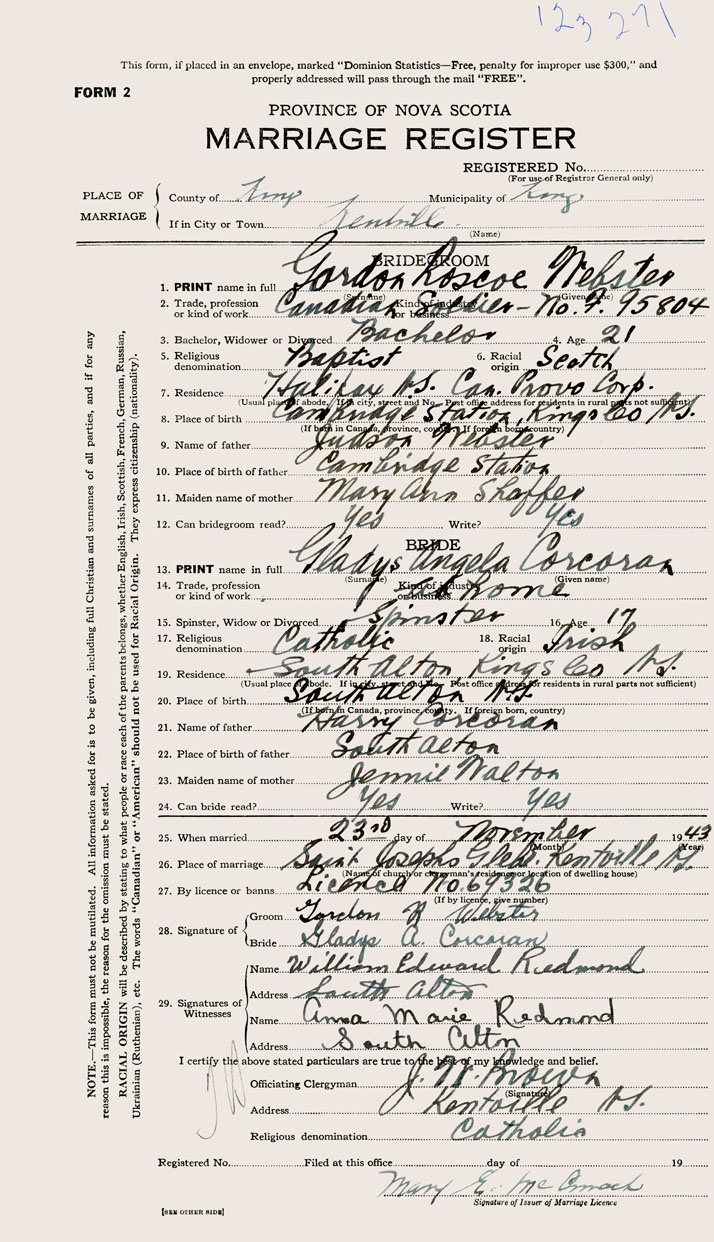 123 271
This form, if placed in an envelope, marked "Dominion Statistics—Free, penalty for improper use $300," and
properly addressed will pass through the mail "FREE".
FORM 2
PROVINCE OF NOVA SCOTIA
MARRIAGE REGISTER
REGISTERED No.
(For use of Registrar General only)
PLACE OF MARRIAGE
County of Kings Municipality of Kings
If in City or Town Kentville
(Name)
BRIDEGROOM
1. PRINT name in full Gordon Roscoe Webster
(Surname) (Given name)
2. Trade, profession or kind of work Canadian Soldier - No. F. 95804
Kind of industry or business
3. Bachelor, Widower or Divorced Bachelor 4. Age 21
5. Religious denomination Baptist 6. Racial origin Scotch
7. Residence Halifax N.S. Can. Provo Corp.
(Usual place of abode. If in city, street and No. Post office address for residents in rural parts not sufficient)
8. Place of birth Cambridge Station, Kings Co N.S.
(If born in Canada, province, county. If foreign born, country)
9. Name of father Judson Webster
10. Place of birth of father Cambridge Station
11. Maiden name of mother Mary Ann Shaffer
12. Can bridegroom read? Yes Write? Yes
BRIDE
13. PRINT name in full Gladys Angela Corcoran
(Surname) (Given name)
14. Trade, profession or kind of work At Home
Kind of industry or business
15. Spinster, Widow or Divorced Spinster 16. Age 17
17. Religious denomination Catholic 18. Racial origin Irish
19. Residence South Alton, Kings Co N.S.
(Usual place of abode. If in city, street and No. Post office address for residents in rural parts not sufficient)
20. Place of birth South Alton N.S.
(If born in Canada, province, county. If foreign born, country)
21. Name of father Harry Corcoran
22. Place of birth of father South Alton
23. Maiden name of mother Jennie Walton
24. Can bride read? Yes Write? Yes
25. When married 23rd day of November 1943
(Month) (Year)
26. Place of marriage Saint Josephs Kentville N.S.
(Name of church or clergyman's residence or location of dwelling house)
27. By licence or banns Licence No. 69326
(If by licence, give number)
28. Signature of
Groom Gordon R Webster
Bride Gladys A. Corcoran
29. Signatures of Witnesses
Name William Edward Redmond
Address South Alton
Name Anna Marie Redmond
Address South Alton
I certify the above stated particulars are true to the best of my knowledge and belief.
Officiating Clergyman J. W. Brown
(Signature)
Address Kentville N.S.
Religious denomination Catholic
Registered No. Filed at this office day of 19
Mary E. McCormack
Signature of Issuer of Marriage Licence
[SEE OTHER SIDE]
NOTE.—This form must not be mutilated. All information asked for is to be given, including full Christian and surnames of all parties, and if for any
reason this is impossible, the reason for the omission must be stated.
RACIAL ORIGIN will be described by stating to what people or race each of the parents belongs, whether English, Irish, Scottish, French, German, Russian,
Ukrainian (Ruthenian), etc. The words "Canadian" or "American" should not be used for Racial Origin. They express citizenship (nationality).